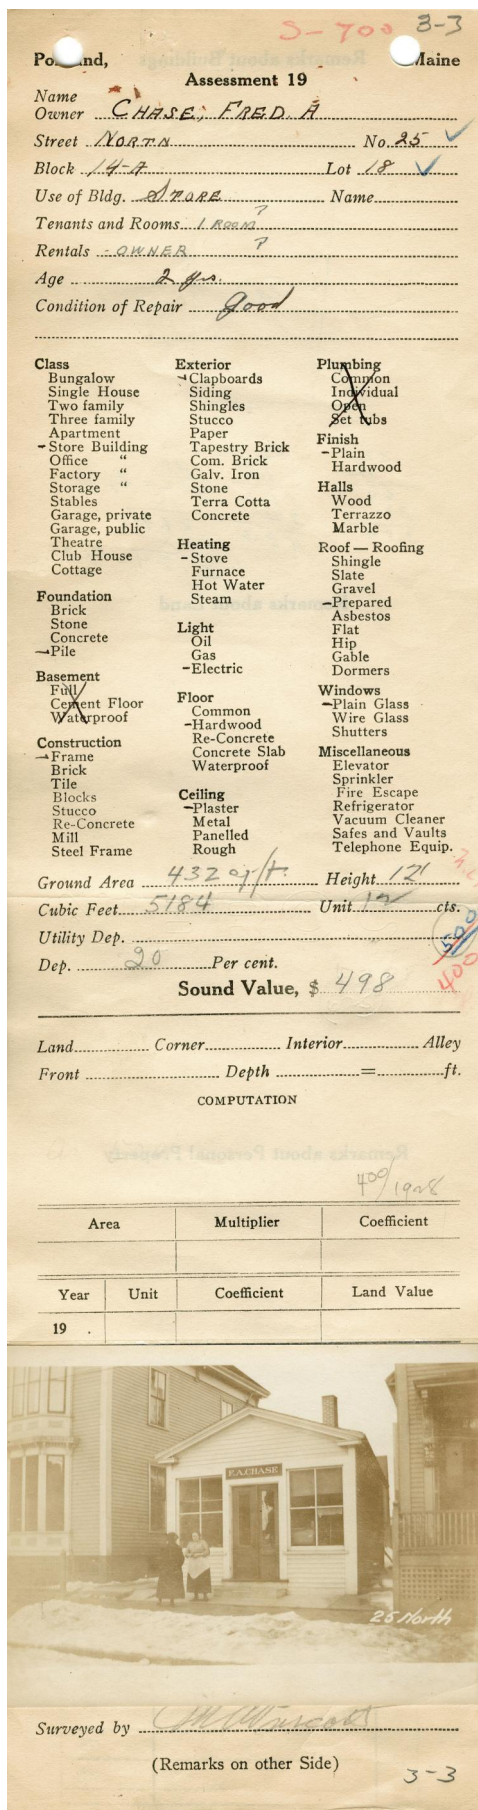 S-700 3-3
Portland, Maine
Assessment 19
Name
Owner CHASE, FRED. A
Street NORTH No. 25 ✓
Block 14-A Lot 18 ✓
Use of Bldg. STORE Name
Tenants and Rooms 1 ROOM ?
Rentals - OWNER ?
Age 2 yrs.
Condition of Repair good
Class
Bungalow
Single House
Two family
Three family
Apartment
- Store Building
Office "
Factory "
Storage "
Stables
Garage, private
Garage, public
Theatre
Club House
Cottage
Foundation
Brick
Stone
Concrete
- Pile
Basement
Full
Cement Floor
Waterproof
Construction
- Frame
Brick
Tile
Blocks
Stucco
Re-Concrete
Mill
Steel Frame
Exterior
- Clapboards
Siding
Shingles
Stucco
Paper
Tapestry Brick
Com. Brick
Galv. Iron
Stone
Terra Cotta
Concrete
Heating
- Stove
Furnace
Hot Water
Steam
Light
Oil
Gas
- Electric
Floor
Common
- Hardwood
Re-Concrete
Concrete Slab
Waterproof
Ceiling
- Plaster
Metal
Panelled
Rough
Plumbing
Common
Individual
Open
Set tubs
Finish
- Plain
Hardwood
Halls
Wood
Terrazzo
Marble
Roof — Roofing
Shingle
Slate
Gravel
- Prepared
Asbestos
Flat
Hip
Gable
Dormers
Windows
- Plain Glass
Wire Glass
Shutters
Miscellaneous
Elevator
Sprinkler
Fire Escape
Refrigerator
Vacuum Cleaner
Safes and Vaults
Telephone Equip.
Ground Area 432 Height 12'
Cubic Feet 5184 Unit 12 cts.
Utility Dep. 500
Dep. 20 Per cent. 400
Sound Value, $ 498
Land Corner Interior Alley
Front Depth = ft.
COMPUTATION
400/1928
Area Multiplier Coefficient
Year Unit Coefficient Land Value
19 .
F.A. CHASE
25 North
Surveyed by
(Remarks on other Side)
3-3